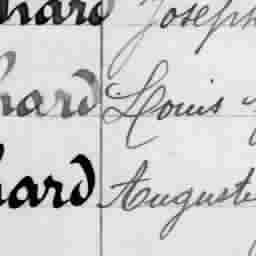 hard Joseph
hard Louis
hard Auguste